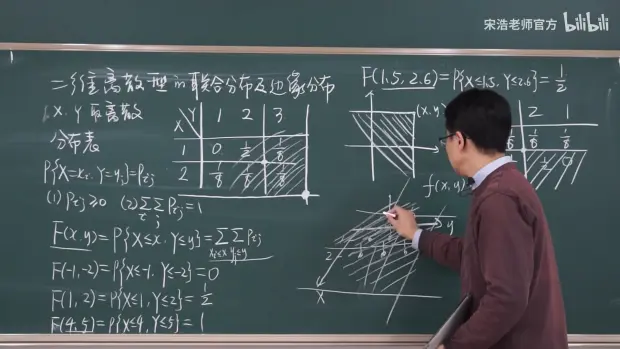 宋浩老师官方 bilibili
二维离散型的联合分布及边缘分布
X. Y 取离散
分布表
Y 1 2 3
X
1 0 1/2 1/8
2 1/8 1/8 1/8
P{X=xᵢ, Y=yⱼ}=Pᵢⱼ
(1) Pᵢⱼ≥0 (2) ∑ᵢ∑ⱼ Pᵢⱼ=1
F(x,y)=P{X≤x, Y≤y}=∑∑Pᵢⱼ
xᵢ≤x yⱼ≤y
F(-1,-2)=P{X≤-1, Y≤-2}=0
F(1, 2)=P{X≤1, Y≤2}=1/2
F(4,5)=P{X≤4, Y≤5}=1
F(1.5, 2.6)=P{X≤1.5, Y≤2.6}=1/2
(x,y)
2 1
1/8 1/8
f(x,y)
y
2
X